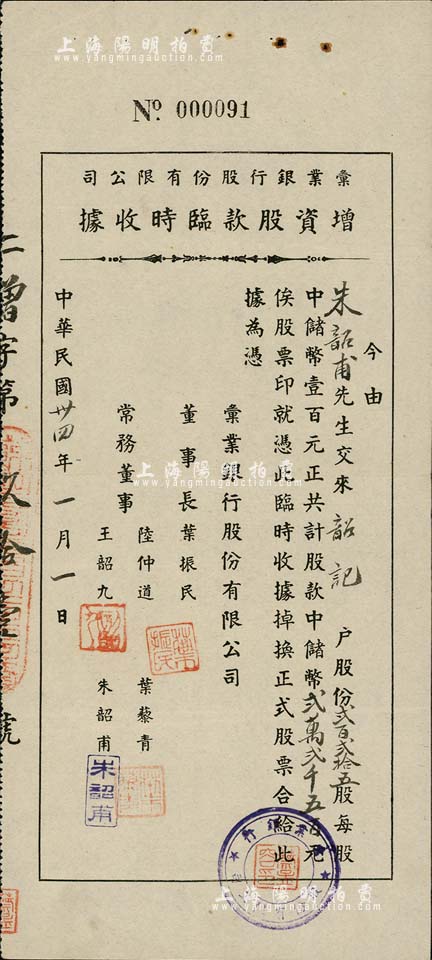 上海陽明拍賣
www.yangmingauction.com
No 000091
彙業銀行股份有限公司
增資股款臨時收據
今由
朱韶甫先生交來韶記戶股份弍百弍拾五股每股
中儲幣壹百元正共計股款中儲幣弍萬弍千五百元
俟股票印就憑此臨時收據掉換正式股票合給此
據為憑
彙業銀行股份有限公司
董事長葉振民
常務董事
陸仲道
王韶九
葉藜青
朱韶甫
中華民國卅四年一月一日
葉振民
朱韶甫
業銀行
增字第玖拾壹號
上海陽明拍賣
www.yangmingauction.com
上海陽明拍賣
www.yangmingauction.com